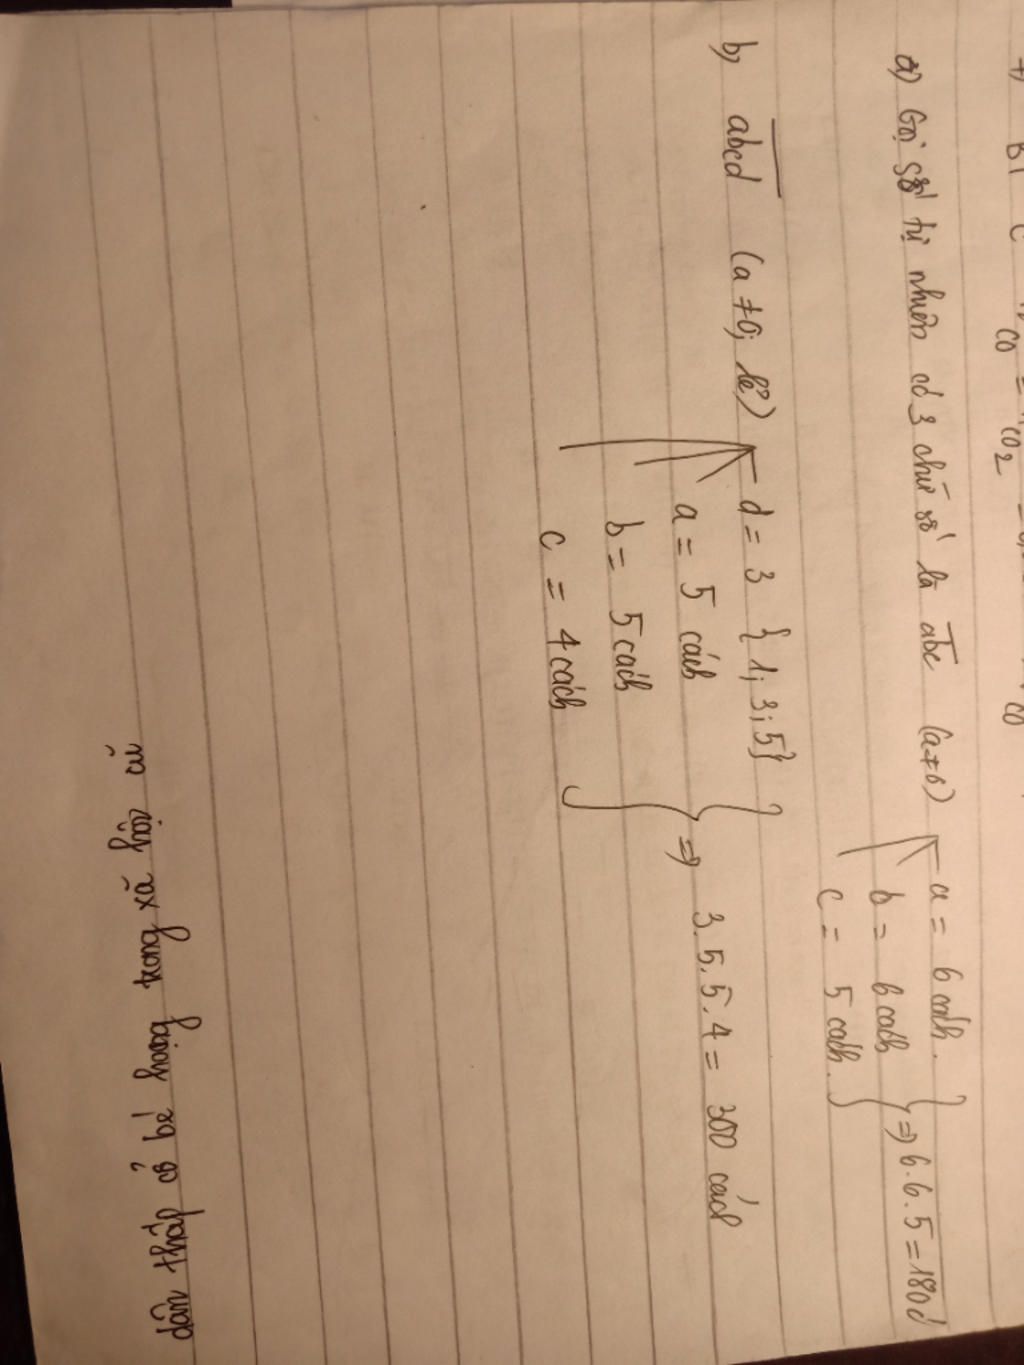 a) Gọi số tự nhiên có 3 chữ số là abc (a≠0)
a = 6 cách.
b = 6 cách
c = 5 cách.
} => 6.6.5 = 180 c
b) abcd (a ≠ 0; lẻ)
d = 3 {1; 3; 5}
a = 5 cách
b = 5 cách
c = 4 cách
} => 3.5.5.4 = 300 cách
dân thấp cổ bé họng trong xã hội cũ